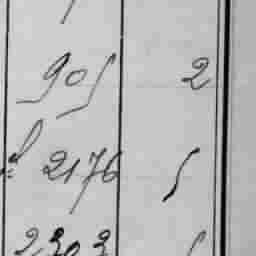 905 2
2176 5
2303